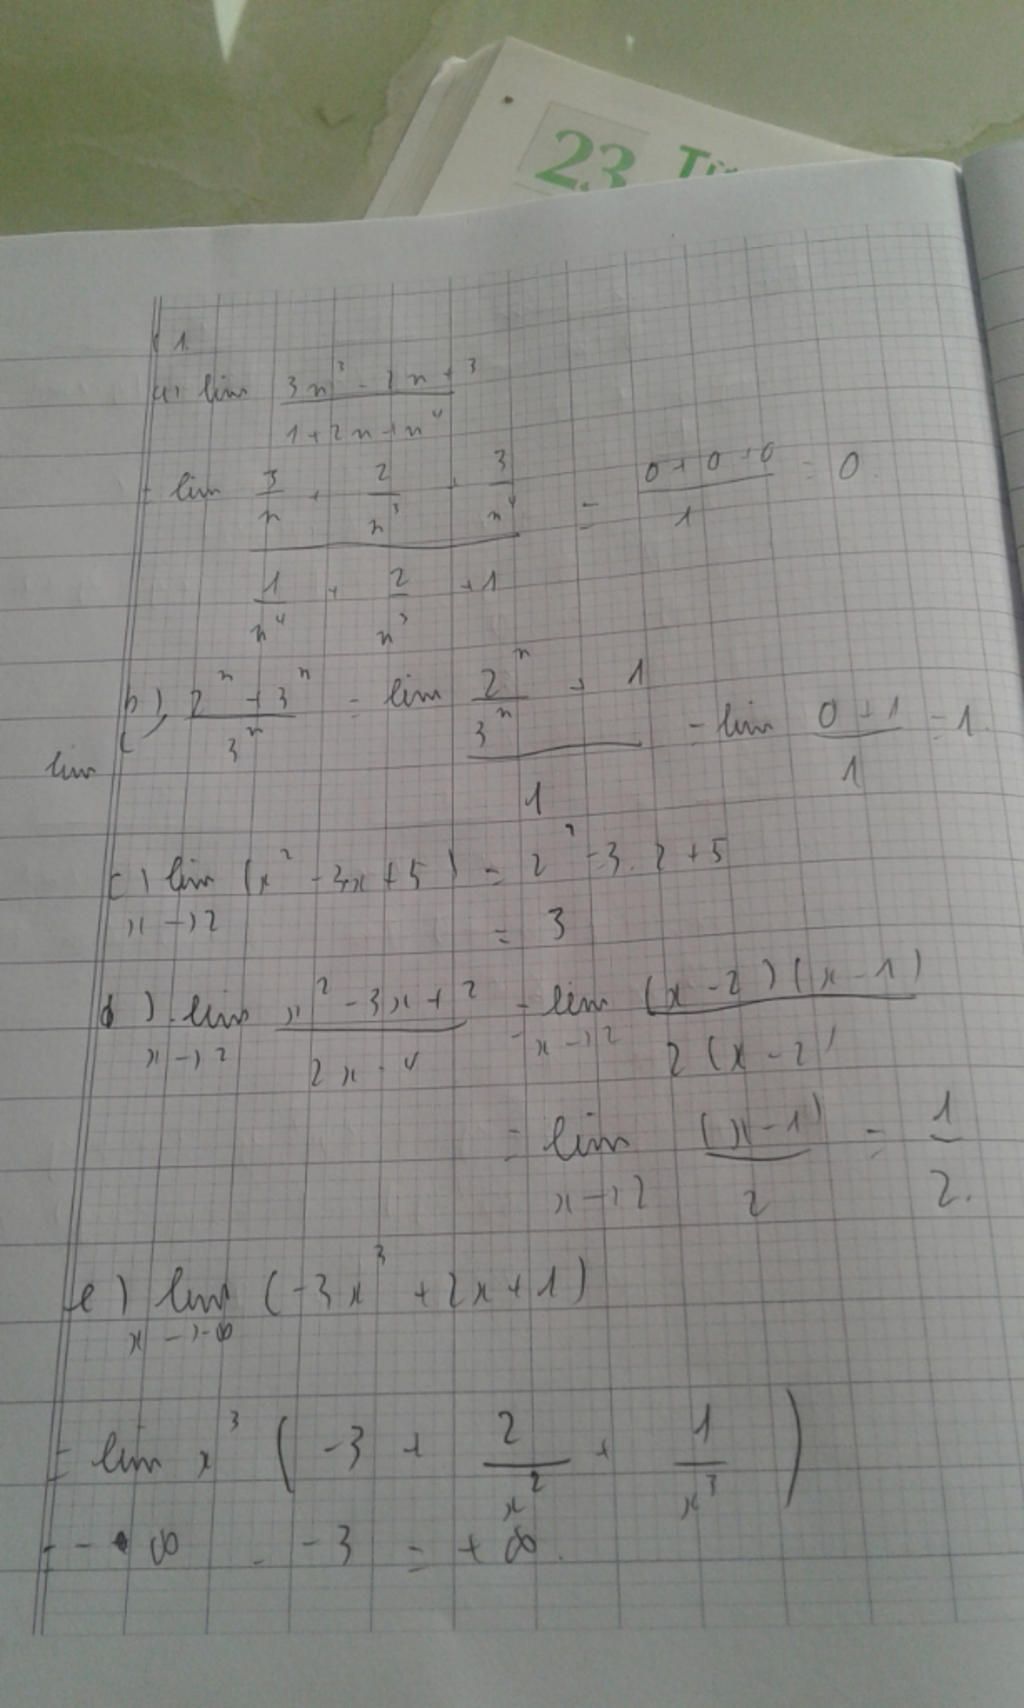 23 Từ
1.
a) lim (3n³ - 2n + 3)/(1 + 2n + n⁴)
= lim (3/n + 2/n³ + 3/n⁴)/(1/n⁴ + 2/n³ + 1) = (0 + 0 + 0)/1 = 0
b) lim (2ⁿ + 3ⁿ)/3ⁿ = lim (2ⁿ/3ⁿ + 1)/1 = lim (0 + 1)/1 = 1.
c) lim x→2 (x² - 3x + 5) = 2² - 3.2 + 5
= 3
d) lim x→2 (x² - 3x + 2)/(2x - 4) = lim x→2 (x - 2)(x - 1)/2(x - 2)
= lim x→2 (x - 1)/2 = 1/2.
e) lim x→-∞ (-3x³ + 2x + 1)
= lim x³ (-3 + 2/x² + 1/x³)
= -∞ . -3 = +∞.